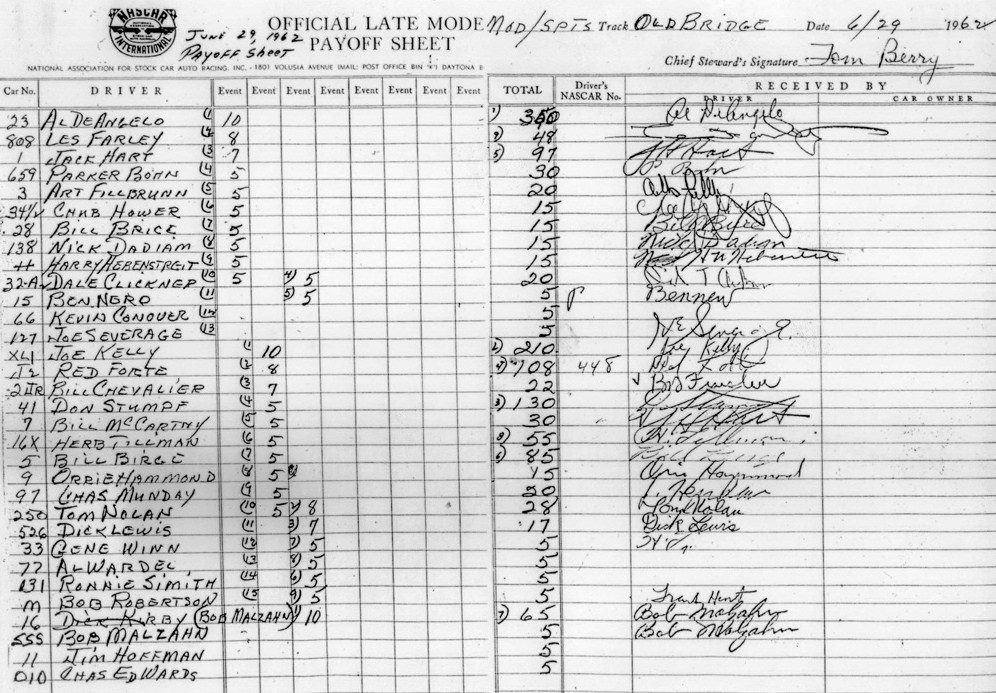 NASCAR INTERNATIONAL
JUNE 29, 1962
PAYOFF SHEET
OFFICIAL LATE MODE MOD/SPTS Track OLD BRIDGE Date 6/29 1962
PAYOFF SHEET
Chief Steward's Signature Tom Berry
NATIONAL ASSOCIATION FOR STOCK CAR AUTO RACING, INC. - 1801 VOLUSIA AVENUE (MAIL: POST OFFICE BIN "K") DAYTONA B
Car No. DRIVER Event Event Event Event Event Event Event TOTAL Driver's NASCAR No. RECEIVED BY
DRIVER CAR OWNER
23 AL DEANGELO (1 10 1) 350 Al DeAngelo
808 LES FARLEY (2 8 2) 48
1 JACK HART (3 7 5) 97 J H Hart
659 PARKER BOHN (4 5 30 P. Bohn
3 ART FILLBRUNN (5 5 20
34½ CHAB HOWER (6 5 15
28 BILL BRICE (7 5 15 Bill Brice
138 NICK DADIAM (8 5 15 Nick Dadian
H HARRY HEBENSTREIT (9 5 15
32-A DALE CLICKNER (10 5 4) 5 20
15 BEN NERO (11 5) 5 5 P Bennew
66 KEVIN CONOVER (12 5
127 JOE SEVERAGE (13 5
XL1 JOE KELLY (1 10 2) 210 Joe Kelly
J2 RED FORTE (2 8 4) 108 448 Red Forte
2JR BILL CHEVALIER (3 7 22
41 DON STUMPF (4 5 3) 130
7 BILL McCARTHY (5 5 30 J H Hart
16X HERB TILLMAN (6 5 8) 55
5 BILL BIRGE (7 5 6) 85
9 ORRIE HAMMOND (8 5 15 Orrie Hammond
97 CHAS MUNDAY (9 5 20
250 TOM NOLAN (10 5 2) 8 28 Tom Nolan
526 DICK LEWIS (11 3) 7 17 Dick Lewis
33 GENE WINN (12 7) 5 5
77 AL WARDEL (13 8) 5 5
131 RONNIE SIMITH (14 6) 5 5
M BOB ROBERTSON (15 9) 5 5 Frank Hunt
16 DICK KIRBY (BOB MALZAHN) 1) 10 7) 65 Bob Malzahn
555 BOB MALZAHN 5 Bob Malzahn
11 JIM HOFFMAN 5
010 CHAS EDWARDS 5